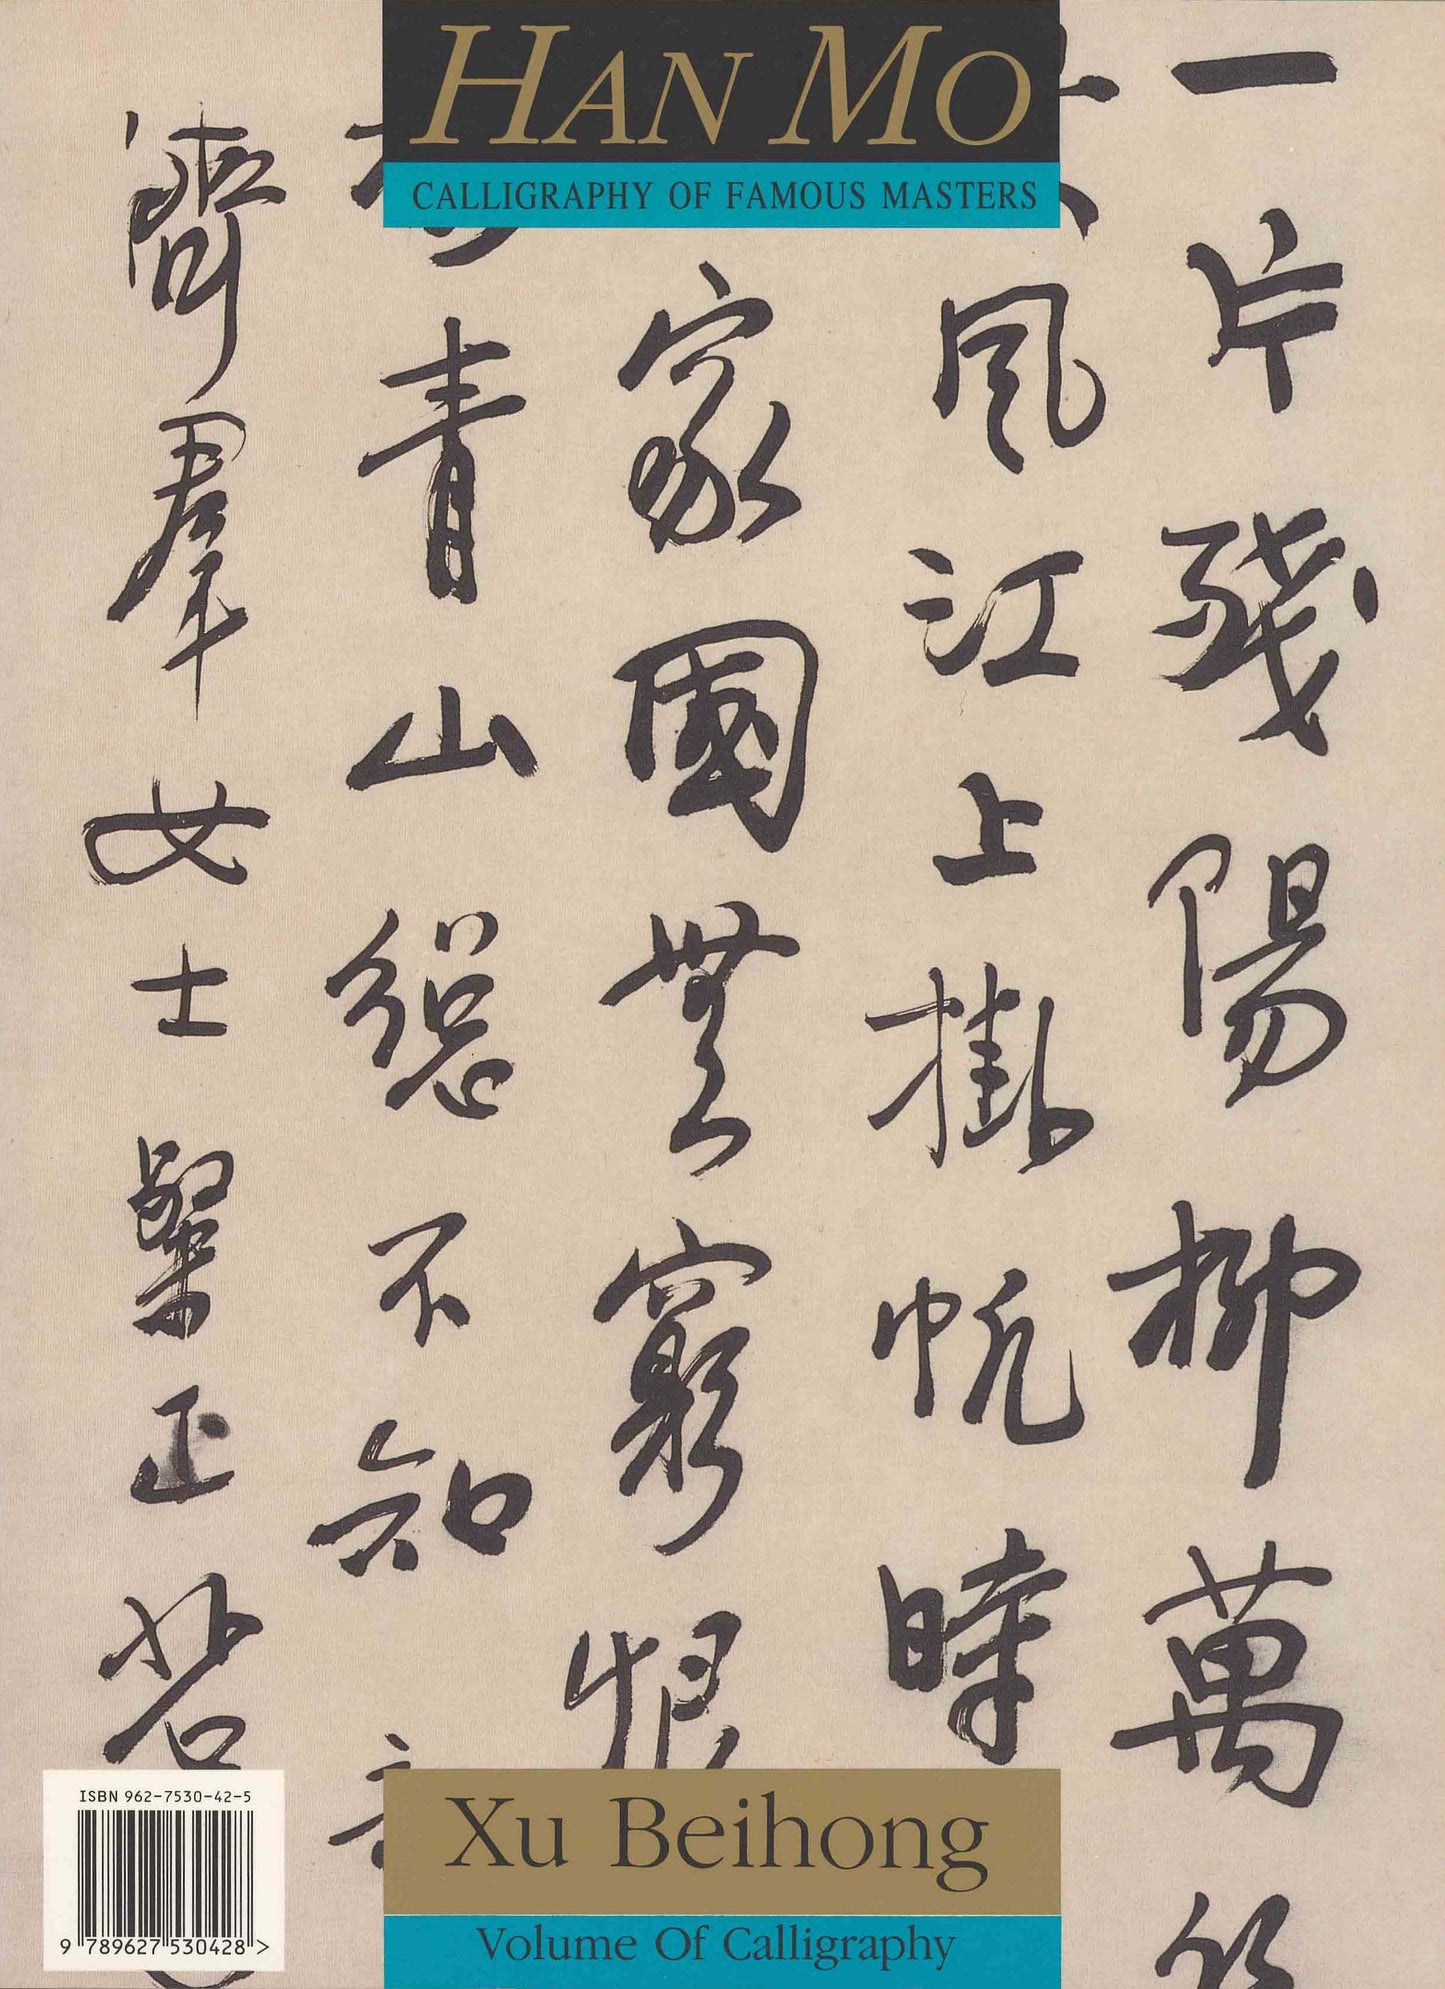 HAN MO
CALLIGRAPHY OF FAMOUS MASTERS
一片殘陽柳萬
風江上掛帆時
家國無窮恨
青山總不知
濟羣女士粲正
ISBN 962-7530-42-5
9 789627 530428 >
Xu Beihong
Volume Of Calligraphy